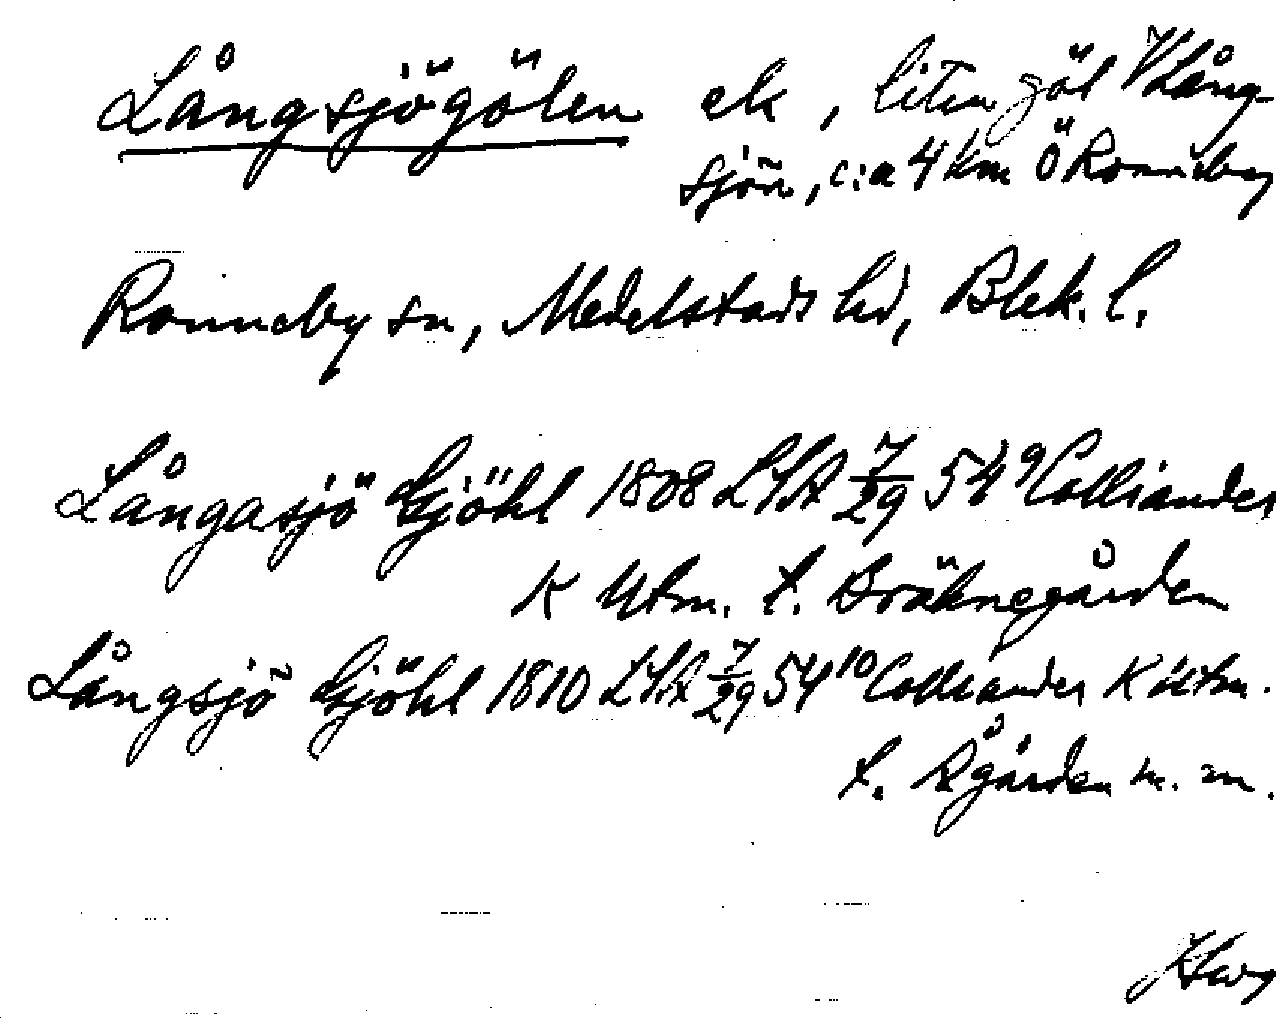 Långsjögölen ek, liten göl V Lång-
sjön, c:a 4 km Ö Ronneby
Ronneby sn, Medelstads hd, Blek. l.
Långasjö Gjöhl 1808 LSA 7/29 54⁹ Colliander
K Utm. t. Bräknegården
Långsjö Gjöhl 1810 LSA 7/29 54¹⁰ Colliander K Utm.
t. Ågården m. m.